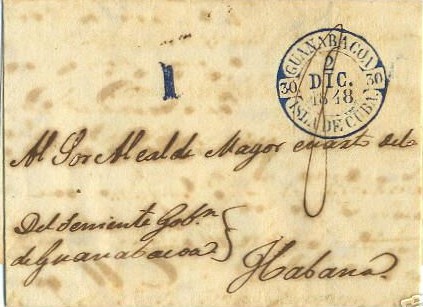 GUANABACOA
2
DIC.
1848
30 30
ISLA DE CUBA.
1
Al Sor Alcalde Mayor cuarto del
Del Teniente Gobn
de Guanabacoa
Habana